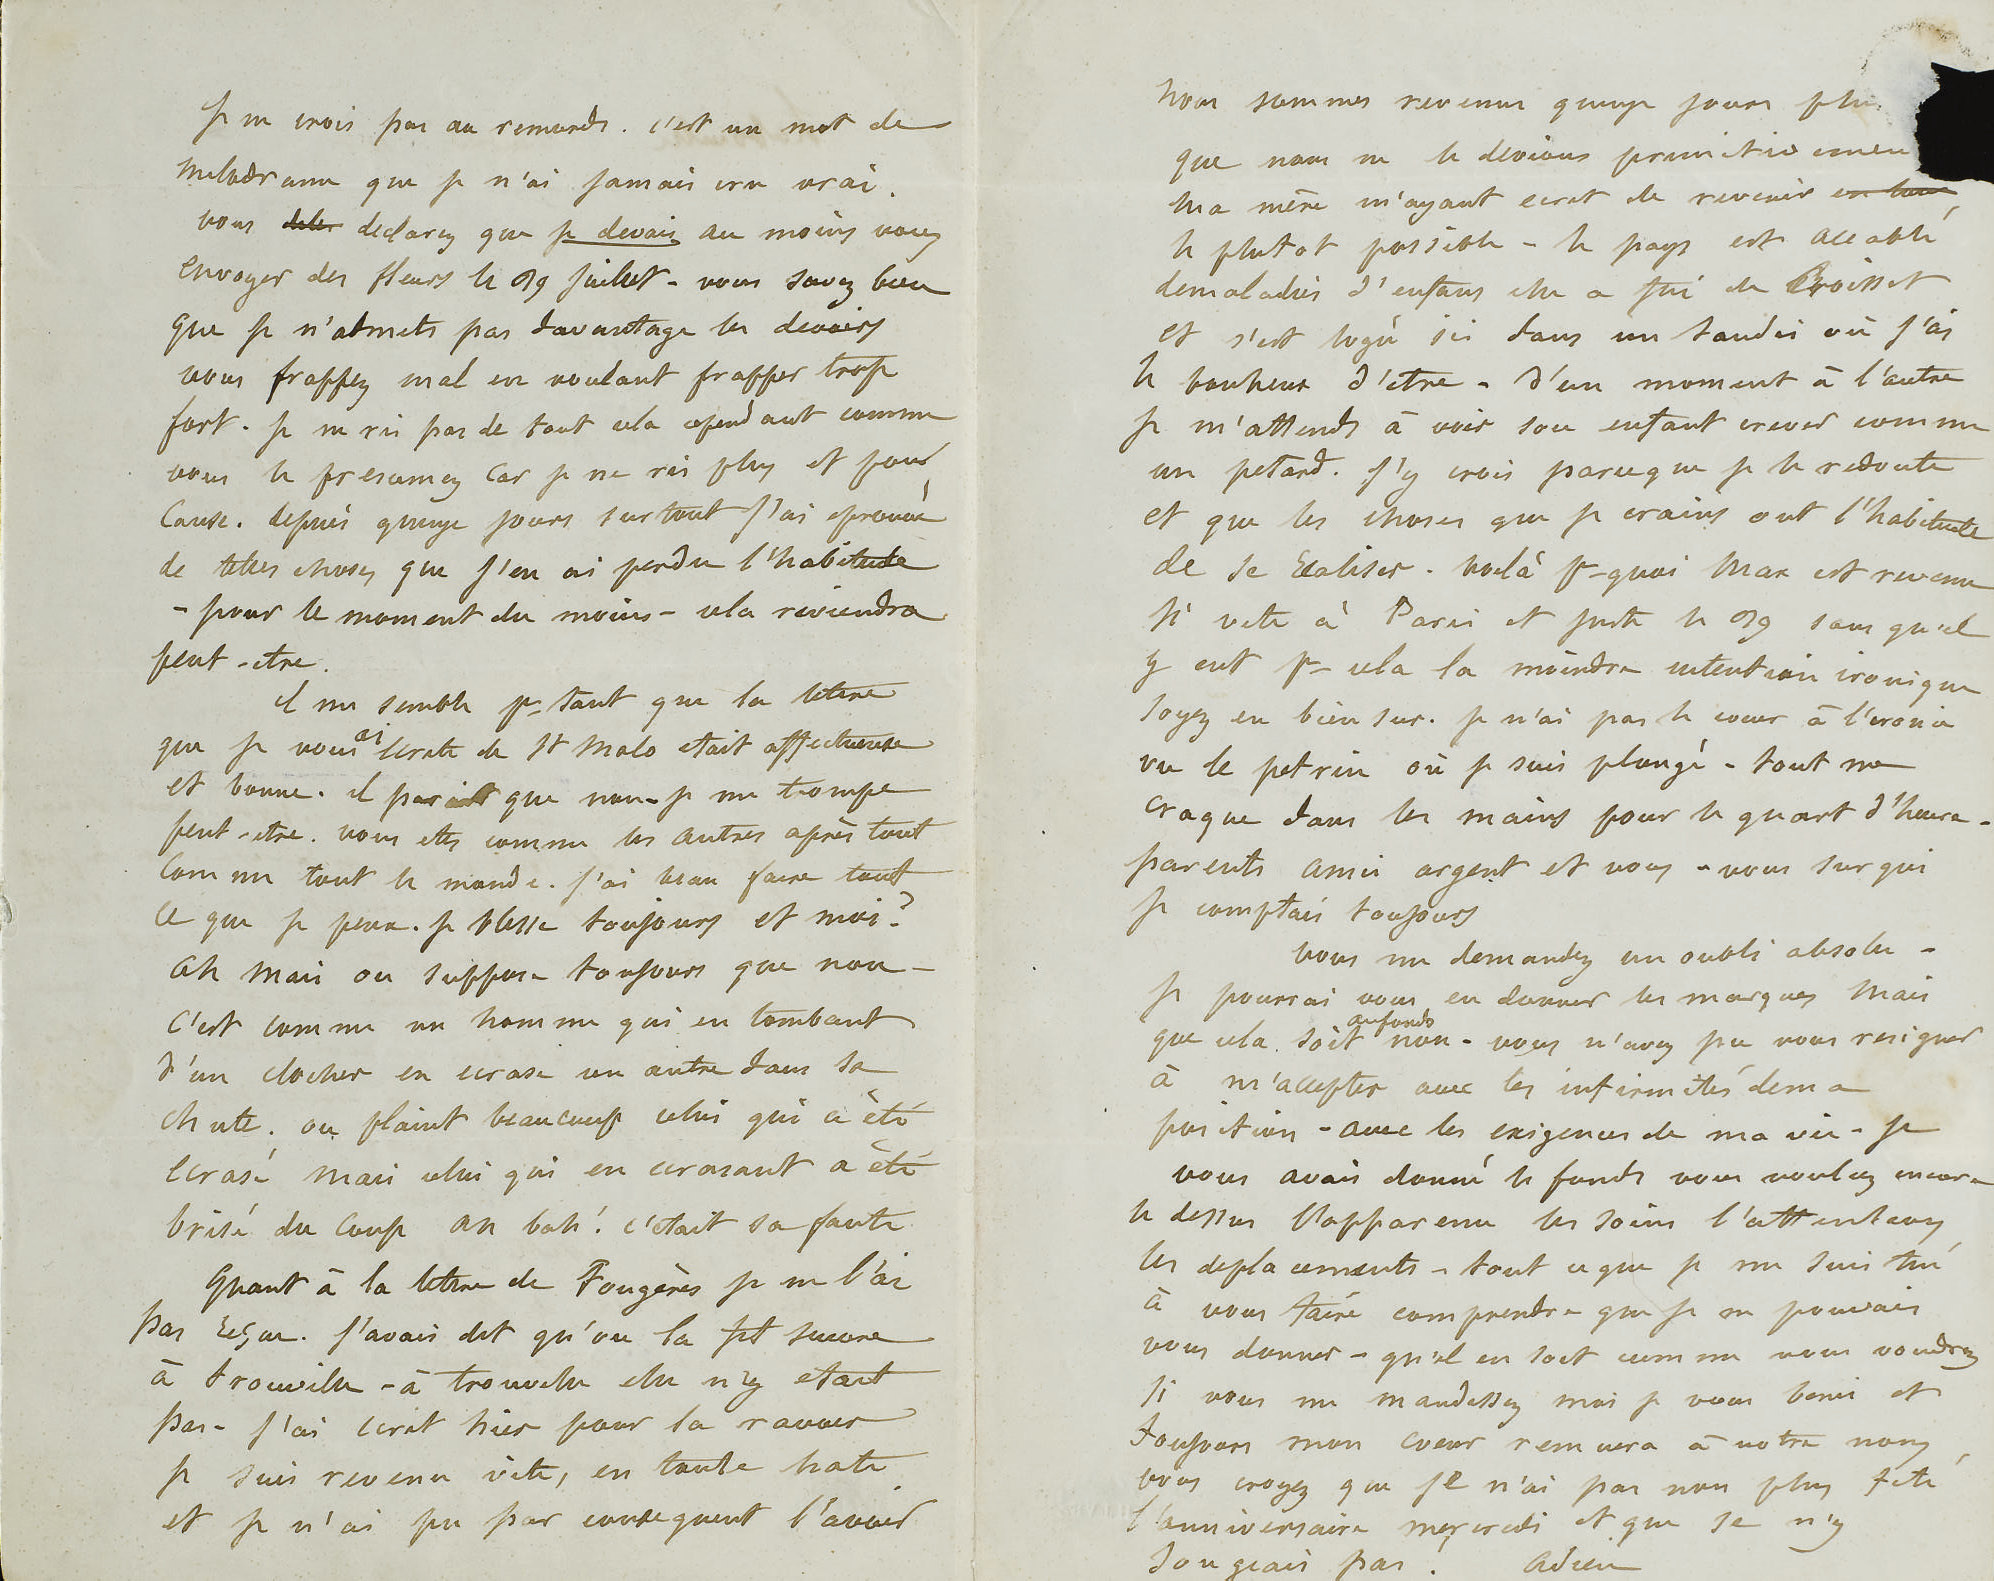 je ne crois pas au remords. c'est un mot de
melodrame que je n'ai jamais cru vrai.
vous declarez que je devais au moins vous
envoyer des fleurs le 29 juillet - vous savez bien
que je n'admets pas davantage les devoirs
vous frappez mal en voulant frapper trop
fort. je ne ris pas de tout cela cependant comme
vous le presumez car je ne ris plus et pour
cause. depuis quinze jours surtout j'ai eprouvé
de telles choses que j'en ai perdu l'habitude
- pour le moment du moins - cela reviendra
peut-etre.
il me semble pr-tant que la lettre
que je vous ai ecrite de St Malo etait affectueuse
et bonne. il parait que non - je me trompe
peut-etre. vous etes comme les autres après tout
comme tout le monde. j'ai beau faire tout
ce que je peux. je blesse toujours et moi?
ah mais on suppose toujours que non -
c'est comme un homme qui en tombant
d'un clocher en ecrase un autre dans sa
chute. on plaint beaucoup celui qui a été
ecrasé mais celui qui en ecrasant a été
brisé du coup ah bah! c'était sa faute
Quant à la lettre de Fougères je ne l'ai
pas reçue. j'avais dit qu'on la fit suivre
à trouville - à trouville elle n'y etait
pas - j'ai ecrit hier pour la ravoir
je suis revenu vite, en toute hate
et je n'ai pu par consequent l'avoir
nous sommes revenus quinze jours plu
que nous ne le devions primitivemen
ma mère m'ayant ecrit de revenir
le plutot possible - le pays est accablé
de maladies d'enfans elle a fui de Croisset
et s'est logée ici dans un taudis où j'ai
le bonheur d'etre - d'un moment à l'autre
je m'attends à voir son enfant crever comme
un petard. j'y crois parceque je le redoute
et que les choses que je crains ont l'habitude
de se realiser. voilà pr-quoi Max est revenu
si vite à Paris et juste le 29 sans qu'il
y eut pr cela la moindre intention ironique
soyez en bien sur. je n'ai pas le coeur à l'ironie
vu le petrin où je suis plongé - tout me
craque dans les mains pour le quart d'heure -
parents amis argent et vous - vous sur qui
je comptais toujours
vous me demandez un oubli absolu -
je pourrai vous en donner les marques mais
que cela soit au fonds non - vous n'avez pu vous resigner
à m'accepter avec les infirmités de ma
position - avec les exigences de ma vie - je
vous avais donné le fonds vous vouliez encore
le dessus l'apparence les soins l'attentions
les deplacements - tout ce que je me suis tué
à vous faire comprendre que je ne pouvais
vous donner - qu'il en soit comme vous voudrez
si vous me maudissez moi je vous benis et
toujours mon coeur remuera à votre nom,
vous croyez que je n'ai pas non plus feté
l'anniversaire mercredi et que je n'y
songeais pas! adieu